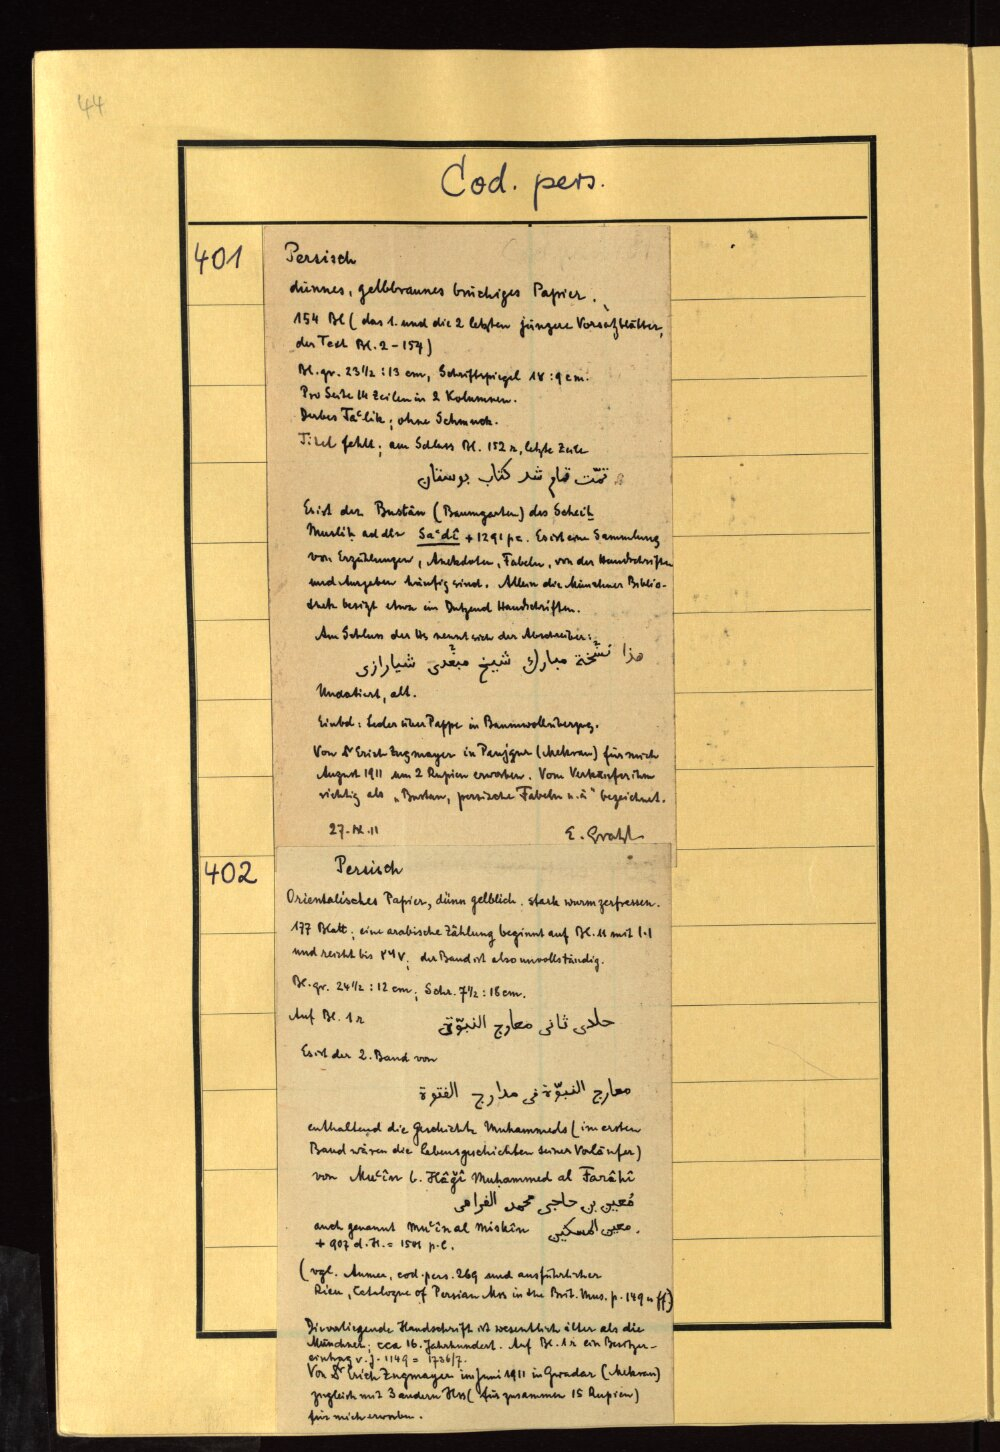 44
Cod. pers.
401
Persisch
dünnes, gelbbraunes brüchiges Papier.
154 Bl (das 1. und die 2 letzten jüngere Vorsatzblätter,
der Text Bl. 2-154)
Bl.gr. 23 1/2 : 13 cm, Schriftspiegel 18 : 9 cm.
Pro Seite 14 Zeilen in 2 Kolumnen.
Derbes Taʿlik; ohne Schmuck.
Titel fehlt; am Schluss Bl. 152 r, letzte Zeile
تمّت تمام شد كتاب بوستان
Es ist der Bustân (Baumgarten) des Scheiḫ
Musliḥ ad dîn Saʿdî + 1291 p.c. Es ist eine Sammlung
von Erzählungen, Anekdoten, Fabeln, von der Handschriften
und Ausgaben häufig sind. Allein die Münchner Biblio-
thek besitzt etwa ein Dutzend Handschriften.
Am Schluss der Hs nennt sich der Abschreiber:
هذا نسّخة مبارك شيخ شيارازى
Undatiert, alt.
Einbd: Leder über Pappe in Baumwollüberzug.
Von Dr Erich Zugmayer in Panjgur (Mekran) für mich
August 1911 um 2 Rupien erworben. Vom Verkäufer ihm
richtig als „Bustan, persische Fabeln u.ä" bezeichnet.
27. IX. 11 E. Gratzl
402
Persisch
Orientalisches Papier, dünn gelblich. stark wurmzerfressen.
177 Blatt; eine arabische Zählung beginnt auf Bl. 11 mit ١٠١
und reicht bis ٢٦٧; der Band ist also unvollständig.
Bl.gr. 24 1/2 : 12 cm; Schr. 7 1/2 : 18 cm.
Auf Bl. 1 r حلاى ثانى معارج النبوّة
Es ist der 2. Band von
معارج النبوّة فى مدارج الفتوة
enthaltend die Geschichte Muhammeds (im ersten
Band wären die Lebensgeschichten seiner Vorläufer)
von Muʿîn b. Ḥâǧǧî Muḥammed al Farâhî
مُعين بن حاجى محمد الفراهى
auch genannt Muʿîn al Miskîn معين المسكين.
+ 907 d. H. = 1501 p.C.
(vgl. Aumer, cod. pers. 269 und ausführlicher
Rieu, Catalogue of Persian Mss in the Brit. Mus. p. 149 u ff)
Die vorliegende Handschrift ist wesentlich älter als die
Münchner; cca 16. Jahrhundert. Auf Bl. 1 r ein Besitzer-
eintrag v. J. 1149 = 1736/7.
Von Dr Erich Zugmayer im Juni 1911 in Gwadar (Mekran)
zugleich mit 3 andern Hss (für zusammen 15 Rupien)
für mich erworben.